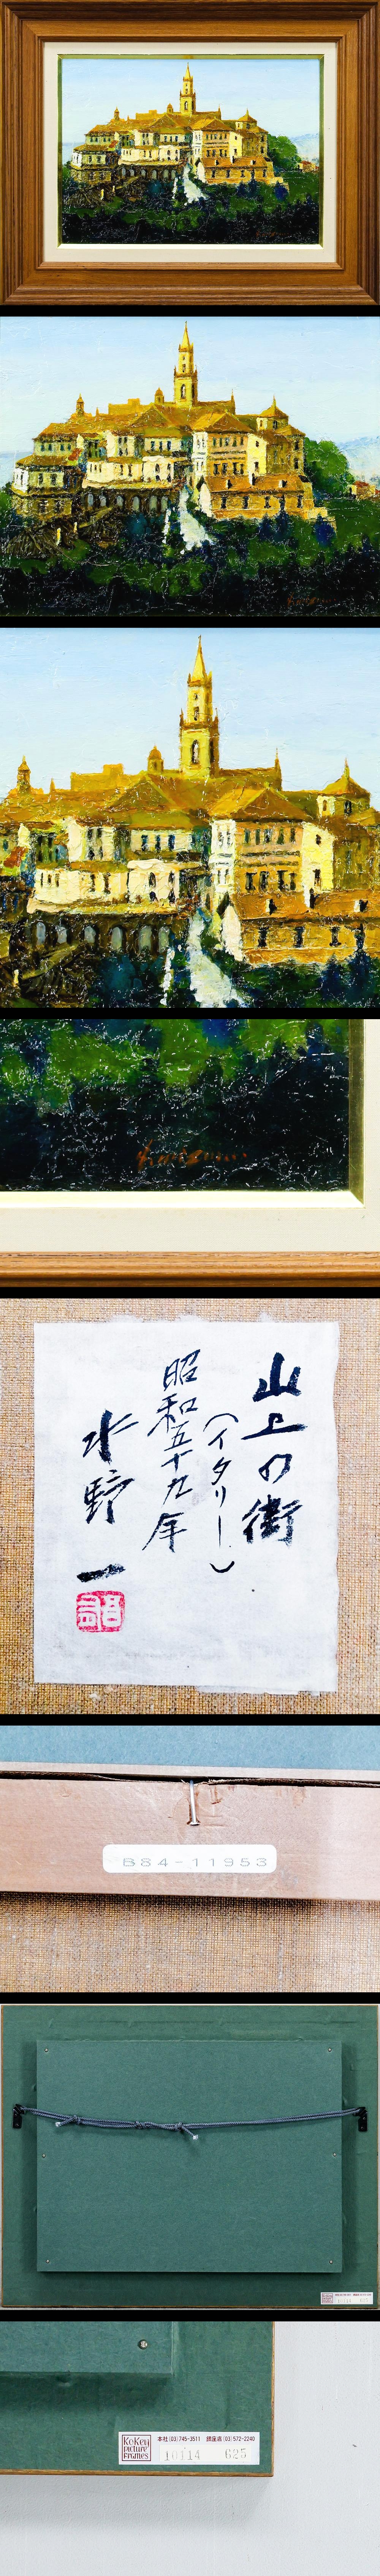 山上の街
(イタリー)
昭和五十九年
水野一
B84-11953
KoKei
picture
frames
本社(03)745-3511 銀座店(03)572-0240
10114 625